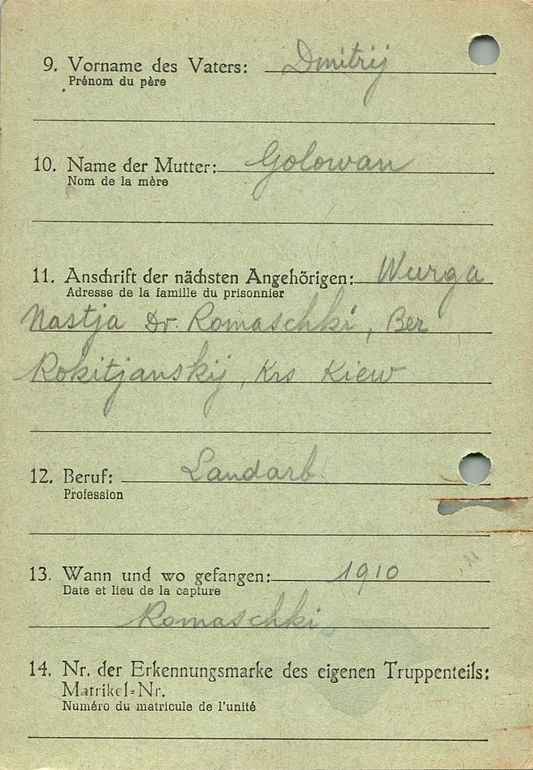 9. Vorname des Vaters: Dmitrij
Prénom du père
10. Name der Mutter: Golowan
Nom de la mère
11. Anschrift der nächsten Angehörigen: Wurga
Adresse de la famille du prisonnier
Nastja Dr. Romaschki, Ber
Rokitjanskij, Krs Kiew
12. Beruf: Landarb.
Profession
13. Wann und wo gefangen: 1910
Date et lieu de la capture
Romaschki
14. Nr. der Erkennungsmarke des eigenen Truppenteils:
Matrikel-Nr.
Numéro du matricule de l'unité